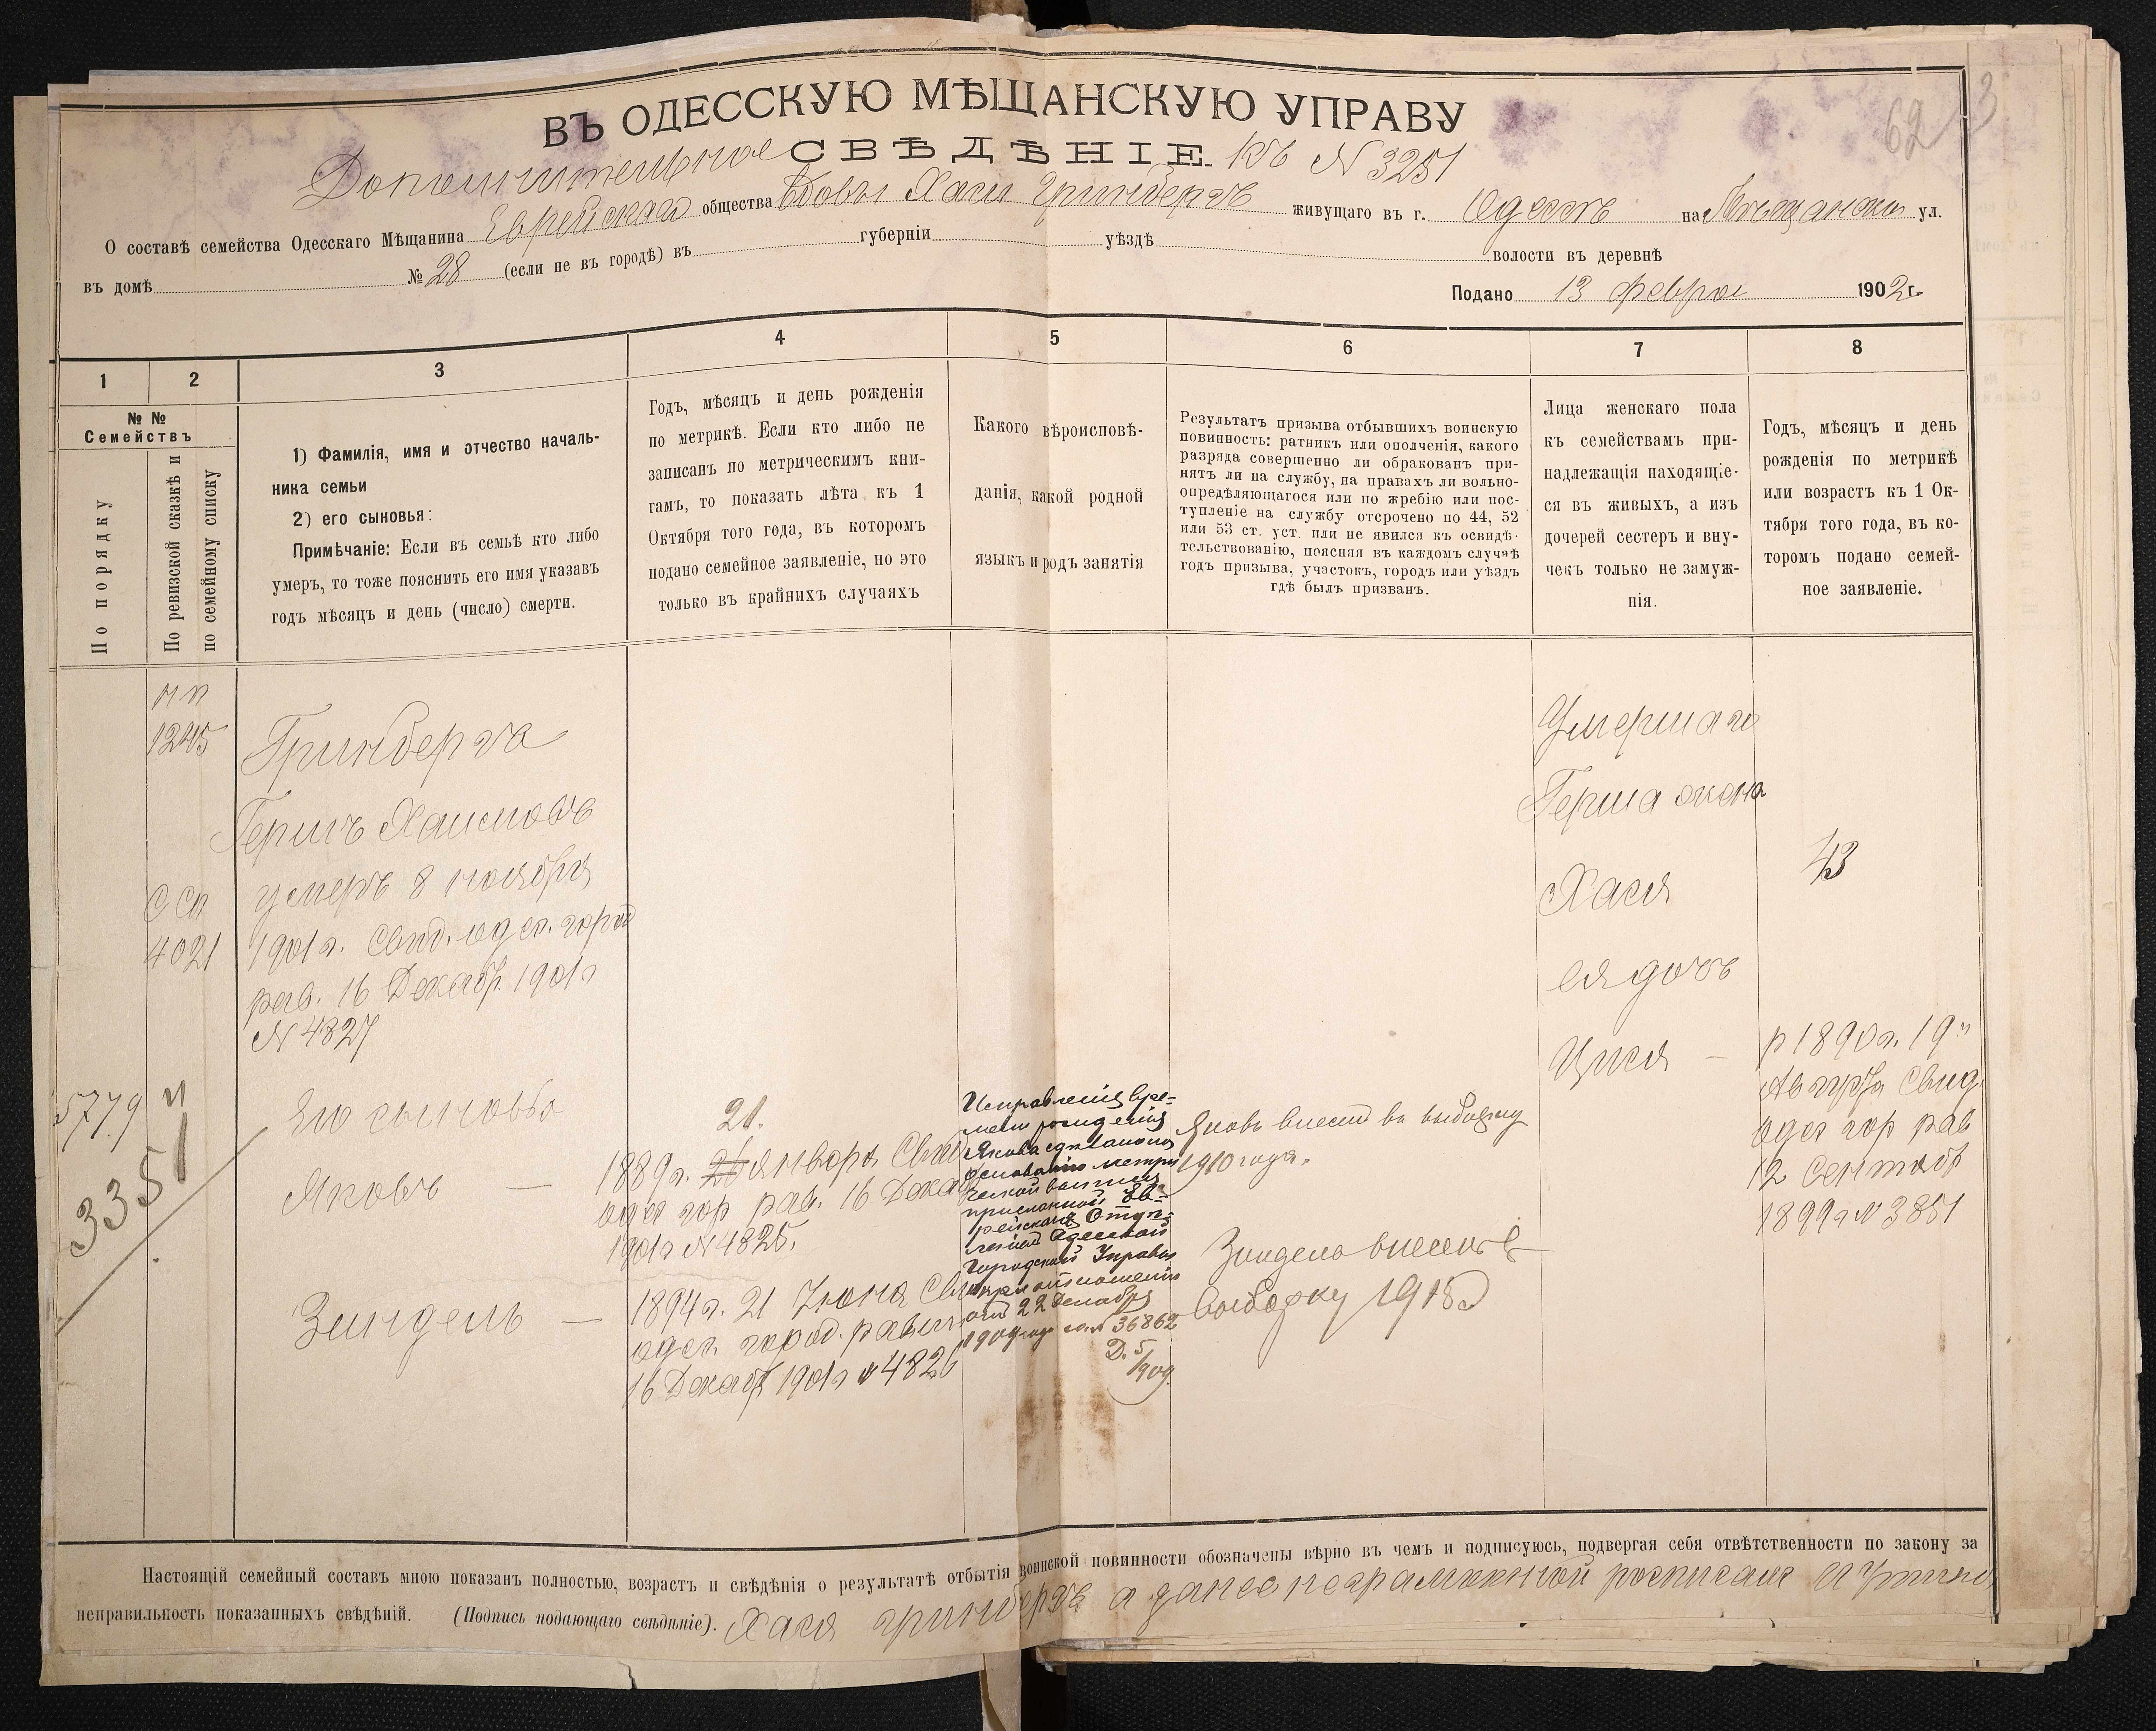 62 3
ВЪ ОДЕССКУЮ МѢЩАНСКУЮ УПРАВУ
Дополнительное СВѢДѢНІЕ. къ N 3251
О составѣ семейства Одесскаго Мѣщанина Еврейскаго общества вдовы Хаси Гринбергъ живущаго въ г. Одессѣ на Мѣщанской ул.
въ домѣ № 28 (если не въ городѣ) въ губерніи уѣздѣ волости въ деревнѣ
Подано 13 февраля 1902 г.
1 2 3 4 5 6 7 8
№ №
Семействъ
По порядку
По ревизской сказкѣ и
по семейному списку
1) Фамилія, имя и отчество началь-
ника семьи
2) его сыновья:
Примѣчаніе: Если въ семьѣ кто либо
умеръ, то тоже пояснить его имя указавъ
годъ мѣсяцъ и день (число) смерти.
Годъ, мѣсяцъ и день рожденія
по метрикѣ. Если кто либо не
записанъ по метрическимъ кни-
гамъ, то показать лѣта къ 1
Октября того года, въ которомъ
подано семейное заявленіе, но это
только въ крайнихъ случаяхъ
Какого вѣроисповѣ-
данія, какой родной
языкъ и родъ занятія
Результатъ призыва отбывшихъ воинскую
повинность: ратникъ или ополченія, какого
разряда совершенно ли обракованъ при-
нятъ ли на службу, на правахъ ли вольно-
опредѣляющагося или по жребію или пос-
тупленіе на службу отсрочено по 44, 52
или 53 ст. уст. или не явился къ освидѣ-
тельствованію, поясняя въ каждомъ случаѣ
годъ призыва, участокъ, городъ или уѣздъ
гдѣ былъ призванъ.
Лица женскаго пола
къ семействамъ при-
надлежащія находящіе-
ся въ живыхъ, а изъ
дочерей сестеръ и вну-
чекъ только не замуж-
нія.
Годъ, мѣсяцъ и день
рожденія по метрикѣ
или возрастъ къ 1 Ок-
тября того года, въ ко-
торомъ подано семей-
ное заявленіе.
1245
С Сп
4021
5779
3351
Гринберга
Гершъ Хаимовъ
умеръ 8 ноября
1901г. Свид. одес. город
рав. 16 Декабр 1901г
N 4827
Его сыновья
Яковъ —
Зиндель —
21.
1889г. января Свид
одес гор рав. 16 Дека
1901г N 4825.
1894г. 21 Іюня Свид
одес. город. равви
16 Декабр 1901г N 4826
Исправленія вре-
мени рожденія
Якова сдѣлано на
основаніи метри
ческой выписи
присланной Ев-
рейскимъ Отдѣ-
леніемъ Одесской
Городской Управы
при отношеніи
отъ 22 Декабря
1909 года за N 36862
Д. 5/909.
Яковъ внесенъ въ выборку
1910 года.
Зиндель внесенъ в
выборку 1915
Умершаго
Герша жена
Хася
ея дочь
Цися —
43
р 1890г. 19го
Августа Свид
одес гор рав
12 Сентябр
1899г N 3851
Настоящій семейный составъ мною показанъ полностью, возрастъ и свѣдѣнія о результатѣ отбытія воинской повинности обозначены вѣрно въ чемъ и подписуюсь, подвергая себя отвѣтственности по закону за
неправильность показанныхъ свѣдѣній. (Подпись подающаго свѣдѣніе). Хася Гринбергъ а за нее неграмотной росписался